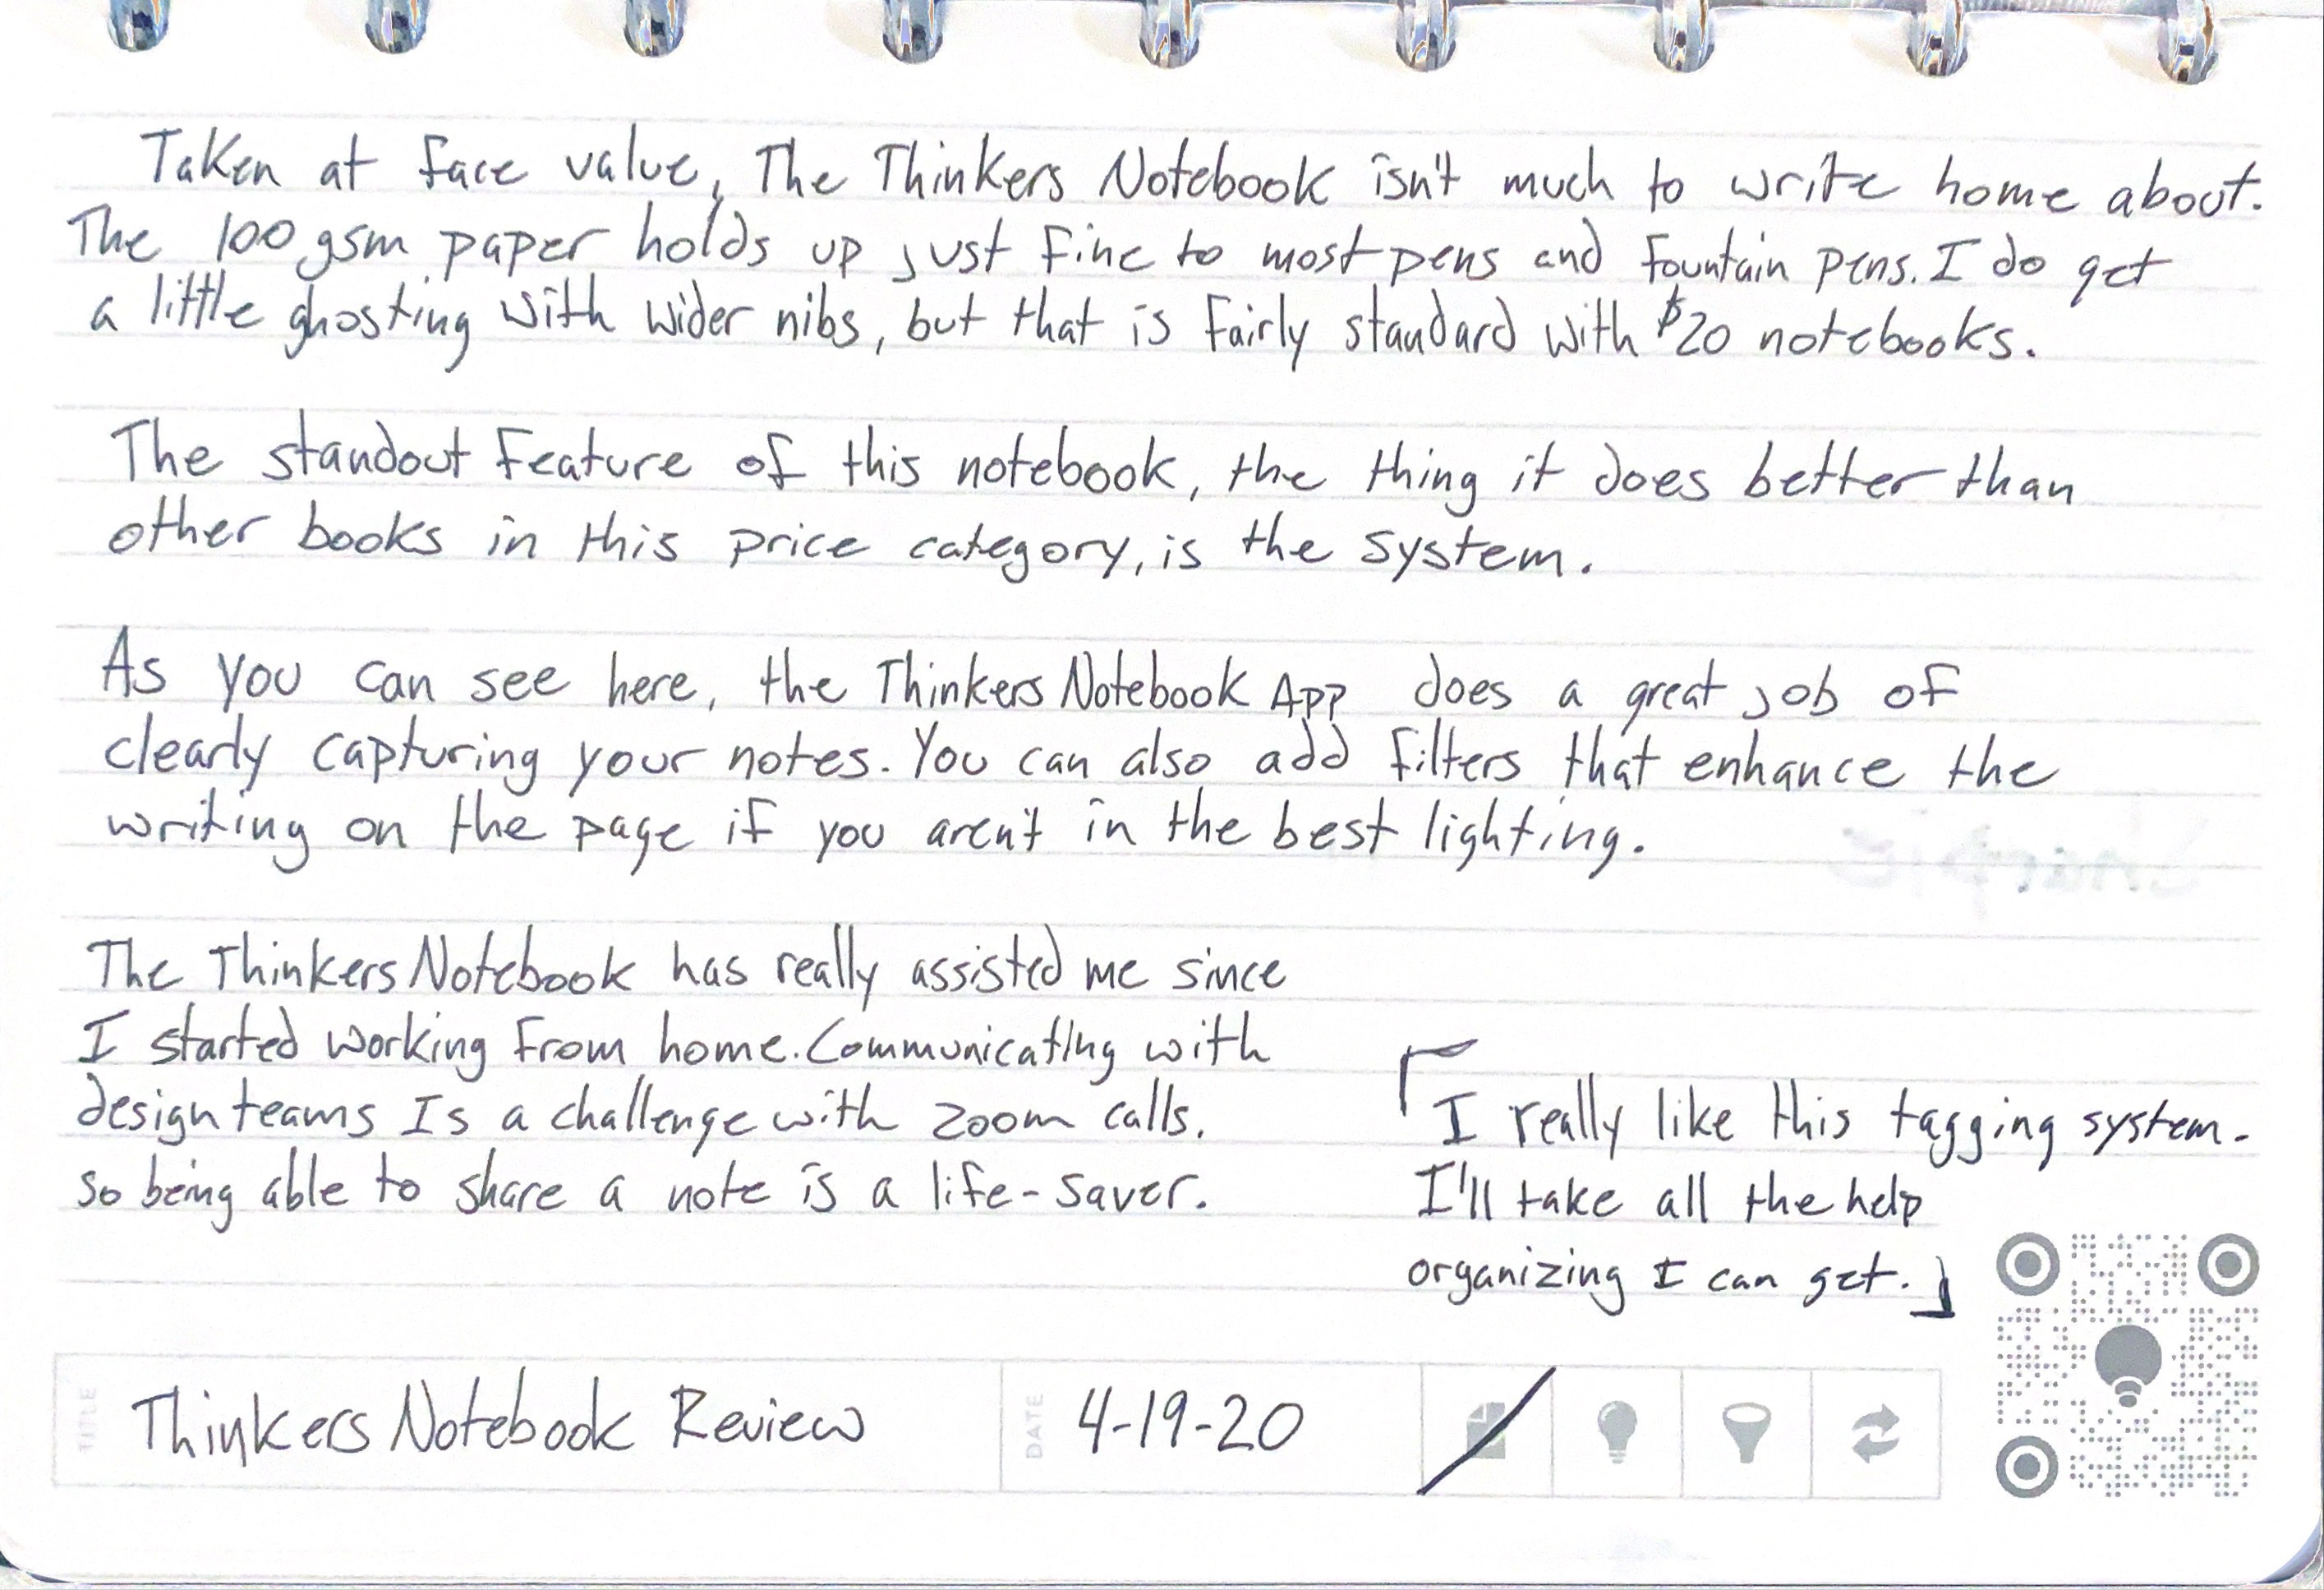 Taken at face value, The Thinkers Notebook isn't much to write home about.
The 100 gsm paper holds up just fine to most pens and fountain pens. I do get
a little ghosting with wider nibs, but that is fairly standard with $20 notebooks.
The standout feature of this notebook, the thing it does better than
other books in this price category, is the system.
As you can see here, the Thinkers Notebook App does a great job of
clearly capturing your notes. You can also add filters that enhance the
writing on the page if you aren't in the best lighting.
Sharpie
The Thinkers Notebook has really assisted me since
I started working from home. Communicating with
design teams Is a challenge with zoom calls.
so being able to share a note is a life-saver.
I really like this tagging system.
I'll take all the help
organizing I can get.
TITLE
Thinkers Notebook Review
DATE
4-19-20